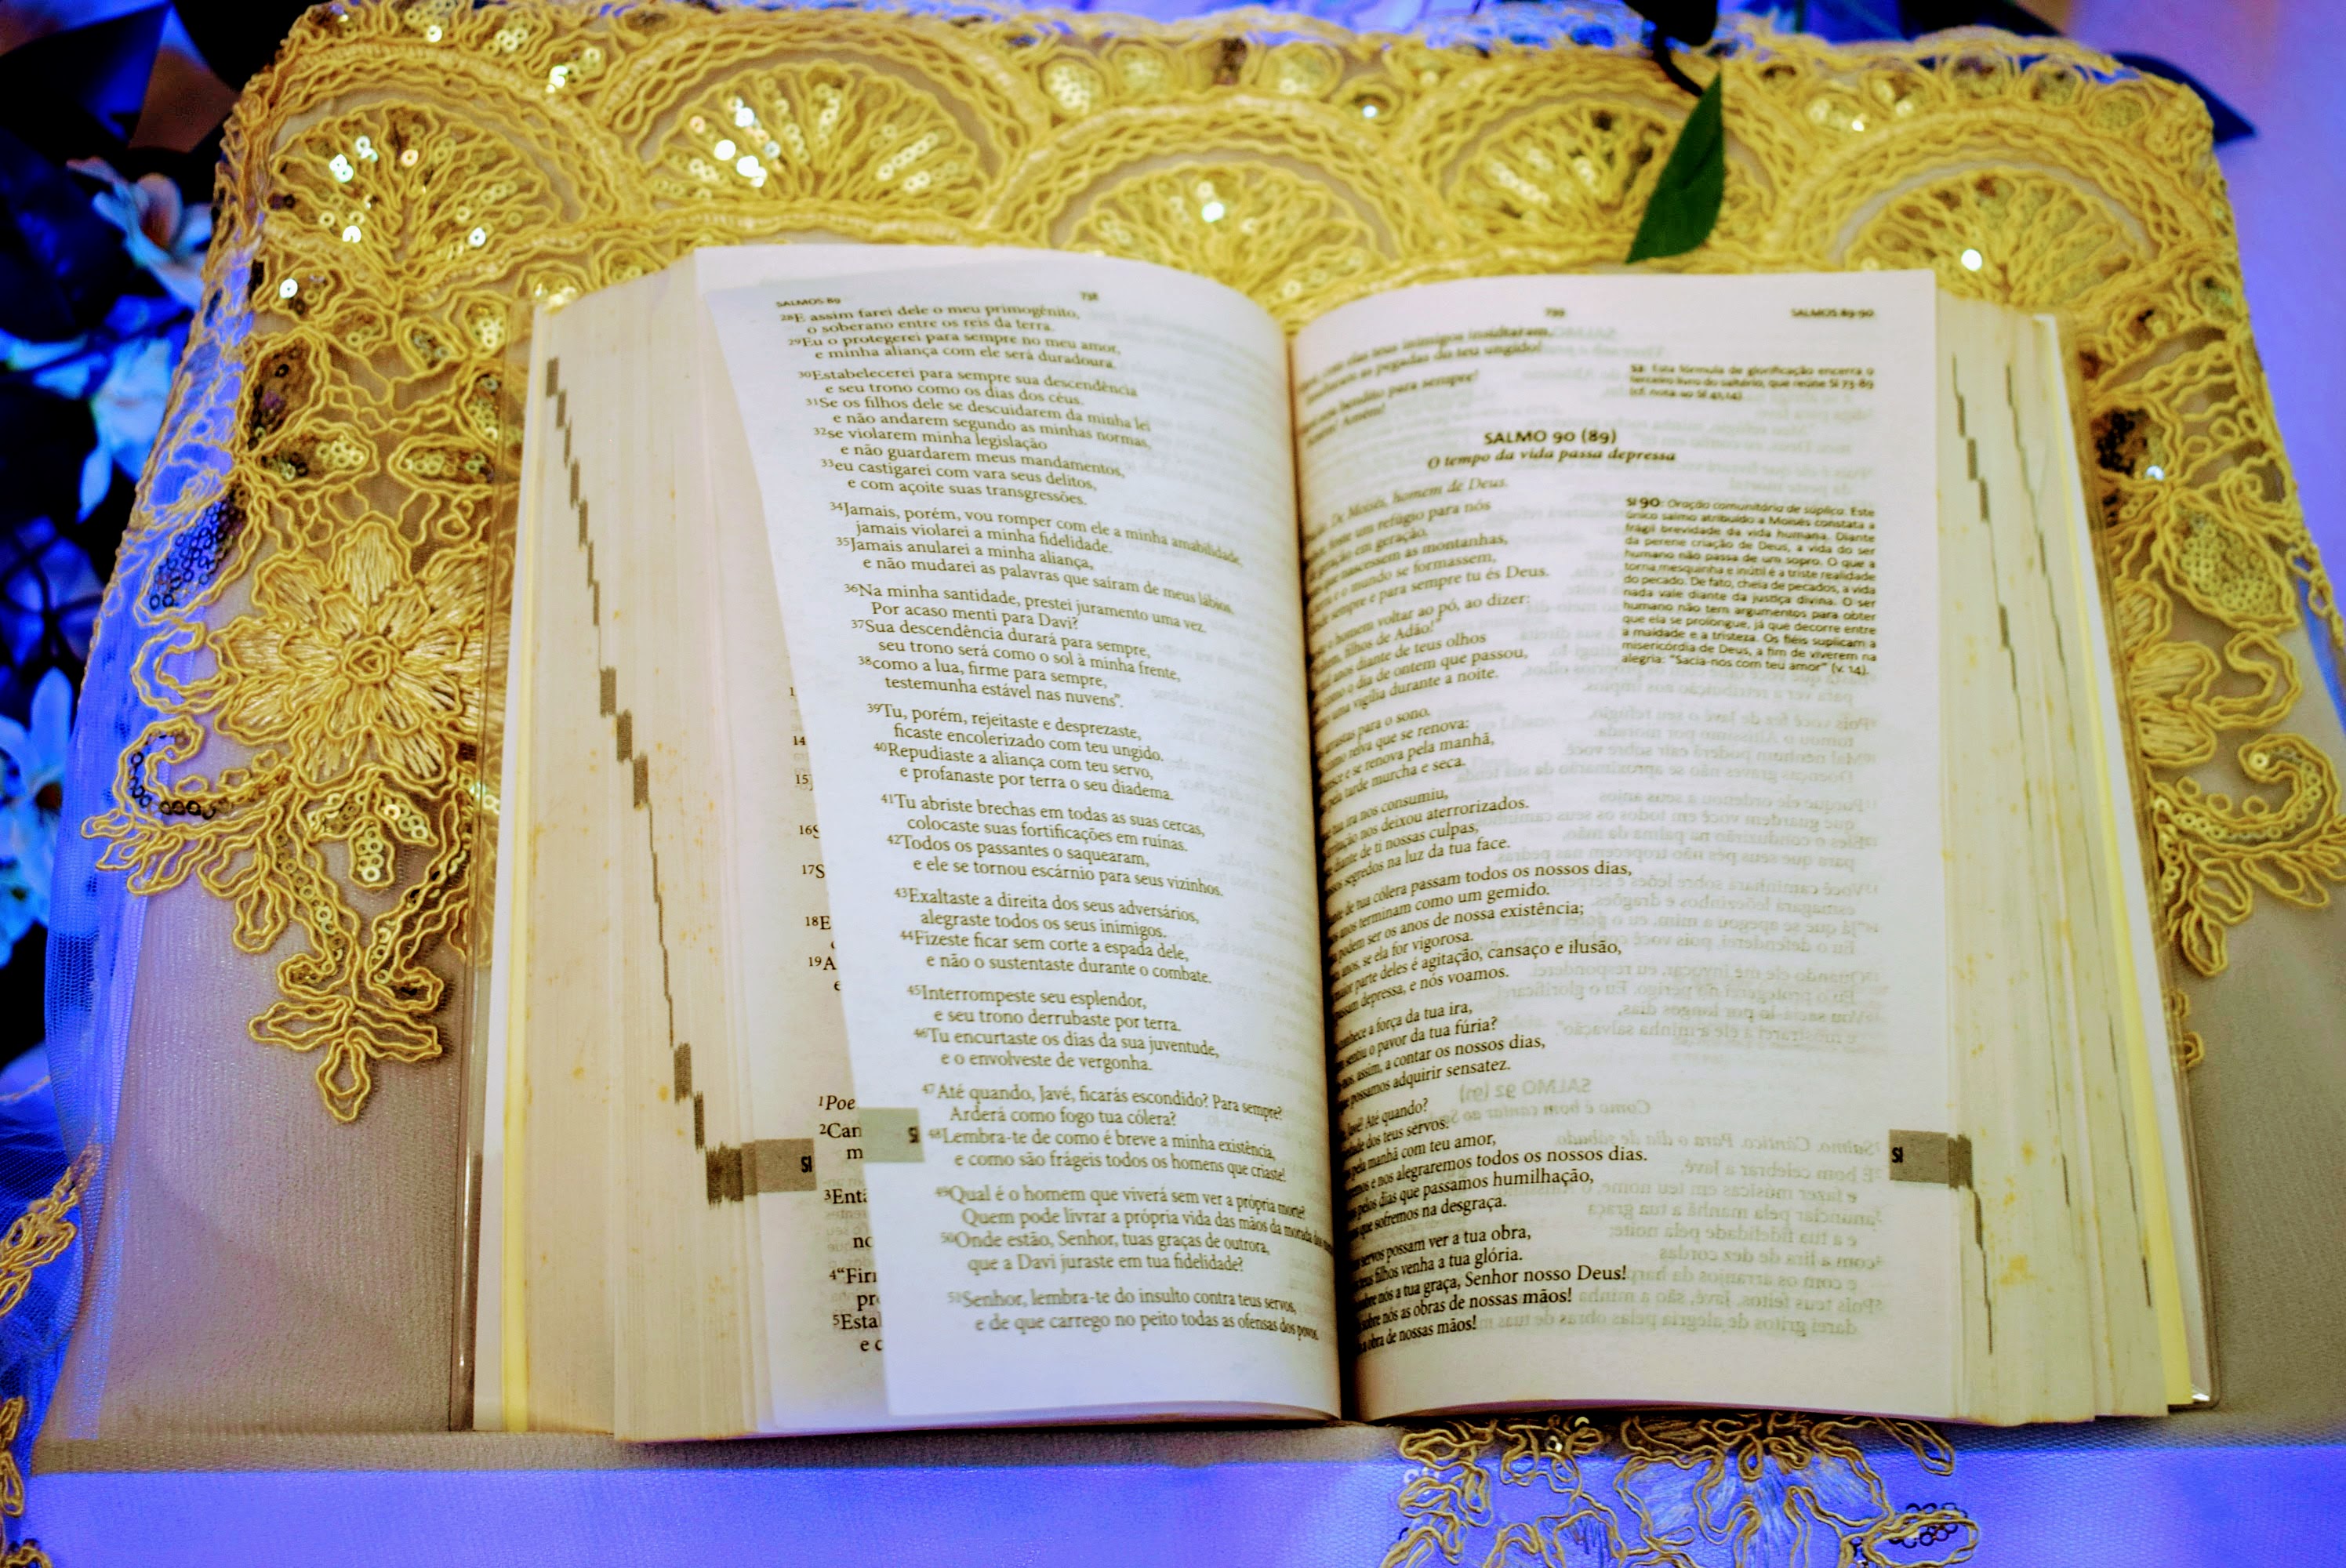 SALMOS 89
28E assim farei dele o meu primogênito,
o soberano entre os reis da terra.
29Eu o protegerei para sempre no meu amor,
e minha aliança com ele será duradoura.
30Estabelecerei para sempre sua descendência
e seu trono como os dias dos céus.
31Se os filhos dele se descuidarem da minha lei
e não andarem segundo as minhas normas,
32se violarem minha legislação
e não guardarem meus mandamentos,
33eu castigarei com vara seus delitos,
e com açoite suas transgressões.
34Jamais, porém, vou romper com ele a minha amabilidade,
jamais violarei a minha fidelidade.
35Jamais anularei a minha aliança,
e não mudarei as palavras que saíram de meus lábios.
36Na minha santidade, prestei juramento uma vez.
Por acaso menti para Davi?
37Sua descendência durará para sempre,
seu trono será como o sol à minha frente,
38como a lua, firme para sempre,
testemunha estável nas nuvens".
39Tu, porém, rejeitaste e desprezaste,
ficaste encolerizado com teu ungido.
40Repudiaste a aliança com teu servo,
e profanaste por terra o seu diadema.
41Tu abriste brechas em todas as suas cercas,
colocaste suas fortificações em ruínas.
42Todos os passantes o saquearam,
e ele se tornou escárnio para seus vizinhos.
43Exaltaste a direita dos seus adversários,
alegraste todos os seus inimigos.
44Fizeste ficar sem corte a espada dele,
e não o sustentaste durante o combate.
45Interrompeste seu esplendor,
e seu trono derrubaste por terra.
46Tu encurtaste os dias da sua juventude,
e o envolveste de vergonha.
47Até quando, Javé, ficarás escondido? Para sempre?
Arderá como fogo tua cólera?
48Lembra-te de como é breve a minha existência,
e como são frágeis todos os homens que criaste!
49Qual é o homem que viverá sem ver a própria morte?
Quem pode livrar a própria vida das mãos da morada
50Onde estão, Senhor, tuas graças de outrora,
que a Davi juraste em tua fidelidade?
51Senhor, lembra-te do insulto contra teus servos,
e de que carrego no peito todas as ofensas dos povos.
Sl
Sl
14
15
16
17S
18E
19A
1Poe
2Can
m
3Entã
no
4"Firm
pr
5Esta
e c
799
SALMOS 89-90
teus inimigos insultaram,
as pegadas do teu ungido!
bendito para sempre!
Amém!
52: Esta fórmula de glorificação encerra o
terceiro livro do saltério, que reúne Sl 73-89
(cf. nota ao Sl 41,14).
SALMO 90 (89)
O tempo da vida passa depressa
De Moisés, homem de Deus.
foste um refúgio para nós
geração em geração.
que nascessem as montanhas,
e o mundo se formassem,
sempre e para sempre tu és Deus.
o homem voltar ao pó, ao dizer:
filhos de Adão!"
anos diante de teus olhos
como o dia de ontem que passou,
uma vigília durante a noite.
para o sono,
como relva que se renova:
e se renova pela manhã,
tarde murcha e seca.
tua ira nos consumiu,
nos deixou aterrorizados.
diante de ti nossas culpas,
segredos na luz da tua face.
de tua cólera passam todos os nossos dias,
anos terminam como um gemido.
podem ser os anos de nossa existência;
anos, se ela for vigorosa.
maior parte deles é agitação, cansaço e ilusão,
depressa, e nós voamos.
conhece a força da tua ira,
sentiu o pavor da tua fúria?
assim, a contar os nossos dias,
possamos adquirir sensatez.
Javé! Até quando?
dos teus servos.
pela manhã com teu amor,
e nos alegraremos todos os nossos dias.
pelos dias que passamos humilhação,
que sofremos na desgraça.
servos possam ver a tua obra,
filhos venha a tua glória.
sobre nós a tua graça, Senhor nosso Deus!
sobre nós as obras de nossas mãos!
obra de nossas mãos!
Sl 90: Oração comunitária de súplica. Este
único salmo atribuído a Moisés constata a
frágil brevidade da vida humana. Diante
da perene criação de Deus, a vida do ser
humano não passa de um sopro. O que a
torna mesquinha e inútil é a triste realidade
do pecado. De fato, cheia de pecados, a vida
nada vale diante da justiça divina. O ser
humano não tem argumentos para obter
que ela se prolongue, já que decorre entre
a maldade e a tristeza. Os fiéis suplicam a
misericórdia de Deus, a fim de viverem na
alegria: "Sacia-nos com teu amor" (v. 14).
Sl